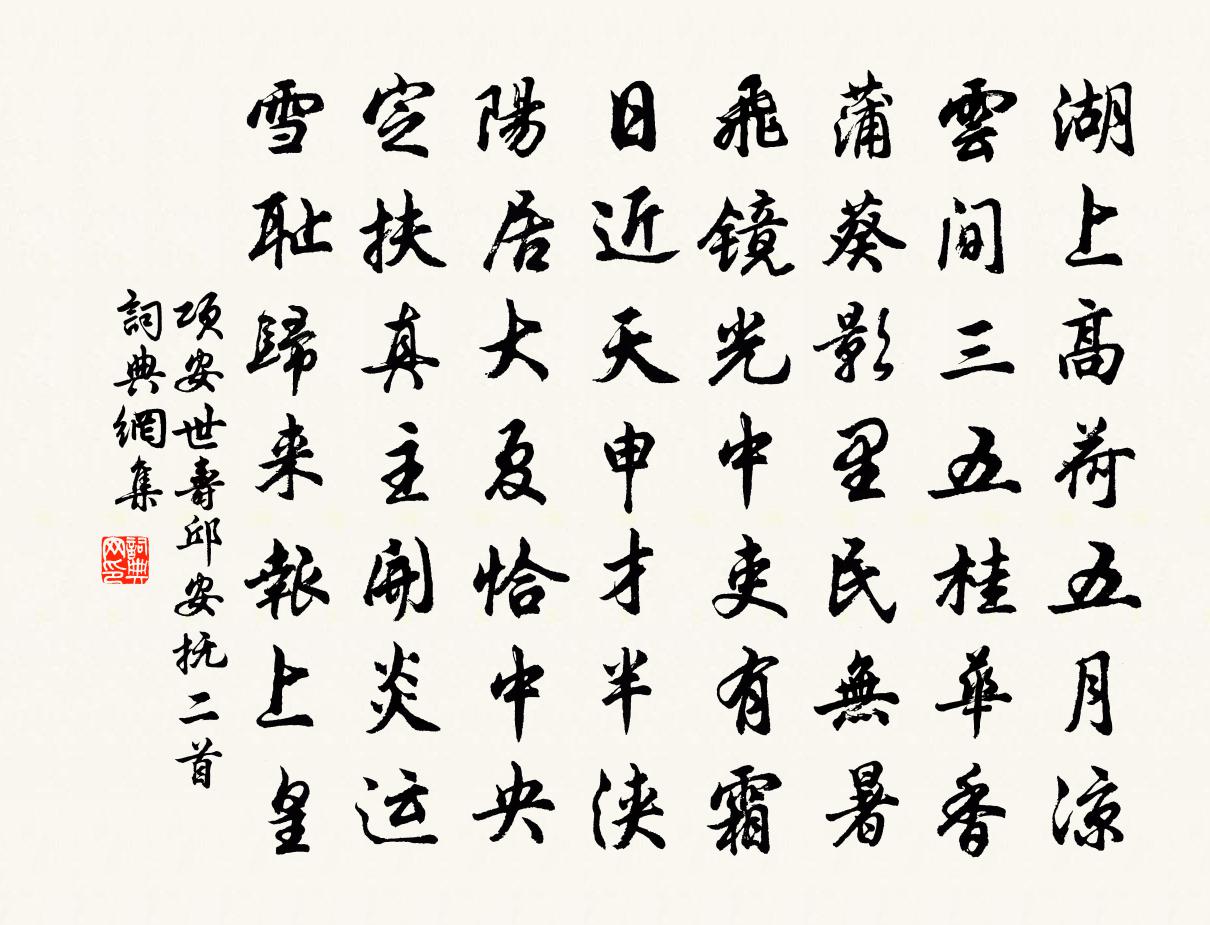 湖上高荷五月凉
雲间三五桂華香
蒲葵影里民無暑
飛镜光中吏有霜
日近天申才半浃
陽居大夏恰中央
定扶真主開炎运
雪耻歸来報上皇
項安世壽邱安抚二首
詞典網集
詞典网印